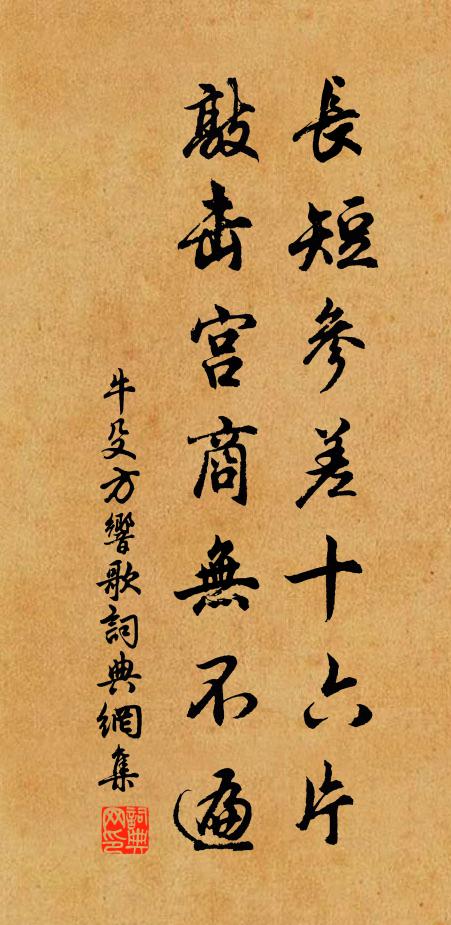 長短參差十六片
敲击宮商無不遍
牛殳方響歌詞典網集
詞典網印